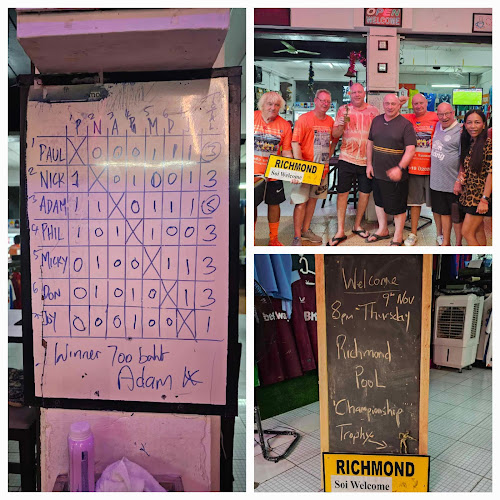 P N A P M D J
1 PAUL X 0 0 0 1 1 1 3
2 NICK 1 X 0 1 0 0 1 3
3 ADAM 1 1 X 0 1 1 1 5
4 PHIL 1 0 1 X 1 0 0 3
5 MICKY 0 1 0 0 X 1 1 3
6 DON 0 1 0 1 0 X 1 3
0 0 0 1 0 0 X 1
Winner 700 baht
Adam
OPEN
WELCOME
RICHMOND
Soi Welcome
Welcome
9th Nov
8pm - Thursday
Richmond
POOL
"Championship"
Trophy
RICHMOND
Soi Welcome